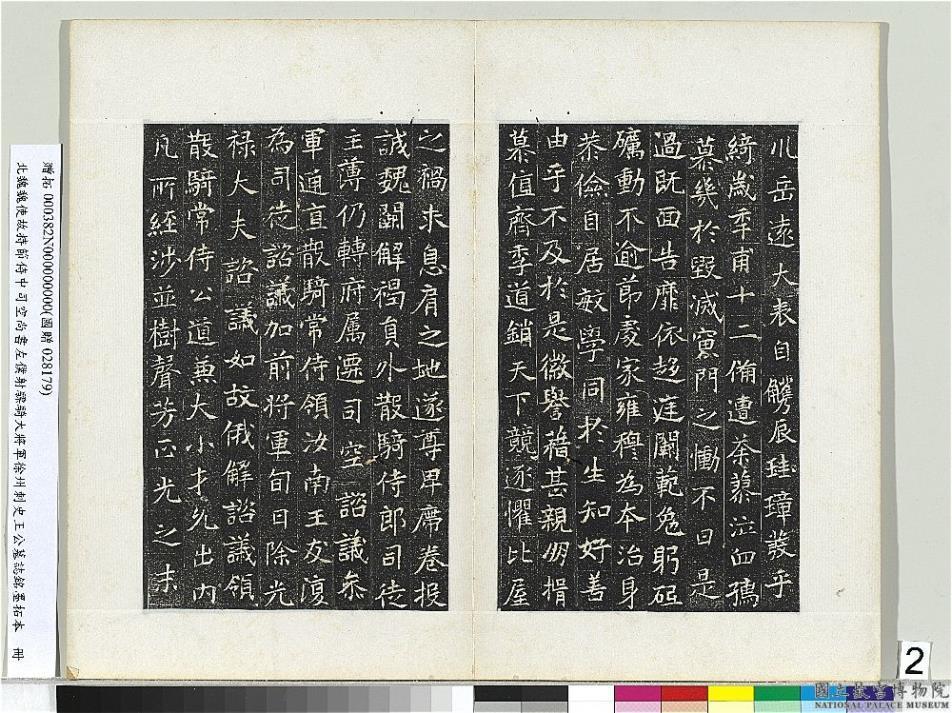 川岳遠大表自觿辰珪璋發乎
綺歲年甫十二備遭荼慕泣血孺
慕幾於毀滅寘門之慟不曰是
過既面告靡依趍庭闃範勉躬砥
礪動不逾節處家雍穆為本治身
恭儉自居敏學同於生知好善
由乎不及於是徽譽藉甚親朋揖
慕值齊季道銷天下競逐懼比屋
之禍求息肩之地遂尊卑席卷投
誠魏闕解褐員外散騎侍郎司徒
主薄仍轉府属遷司空諮議叅
軍通直散騎常侍領汝南王友復
為司徒諮議加前将軍旬日除光
禄大夫諮議如故俄解諮議領
散騎常侍公道兼大小才允出内
凡所經涉並樹聲芳正光之末
贈拓 000382N000000000(國贈 028179)
北魏魏使故持節侍中司空尚書左僕射驃騎大將軍徐州刺史王公墓誌銘墨拓本 冊
2
國立故宮博物院
NATIONAL PALACE MUSEUM